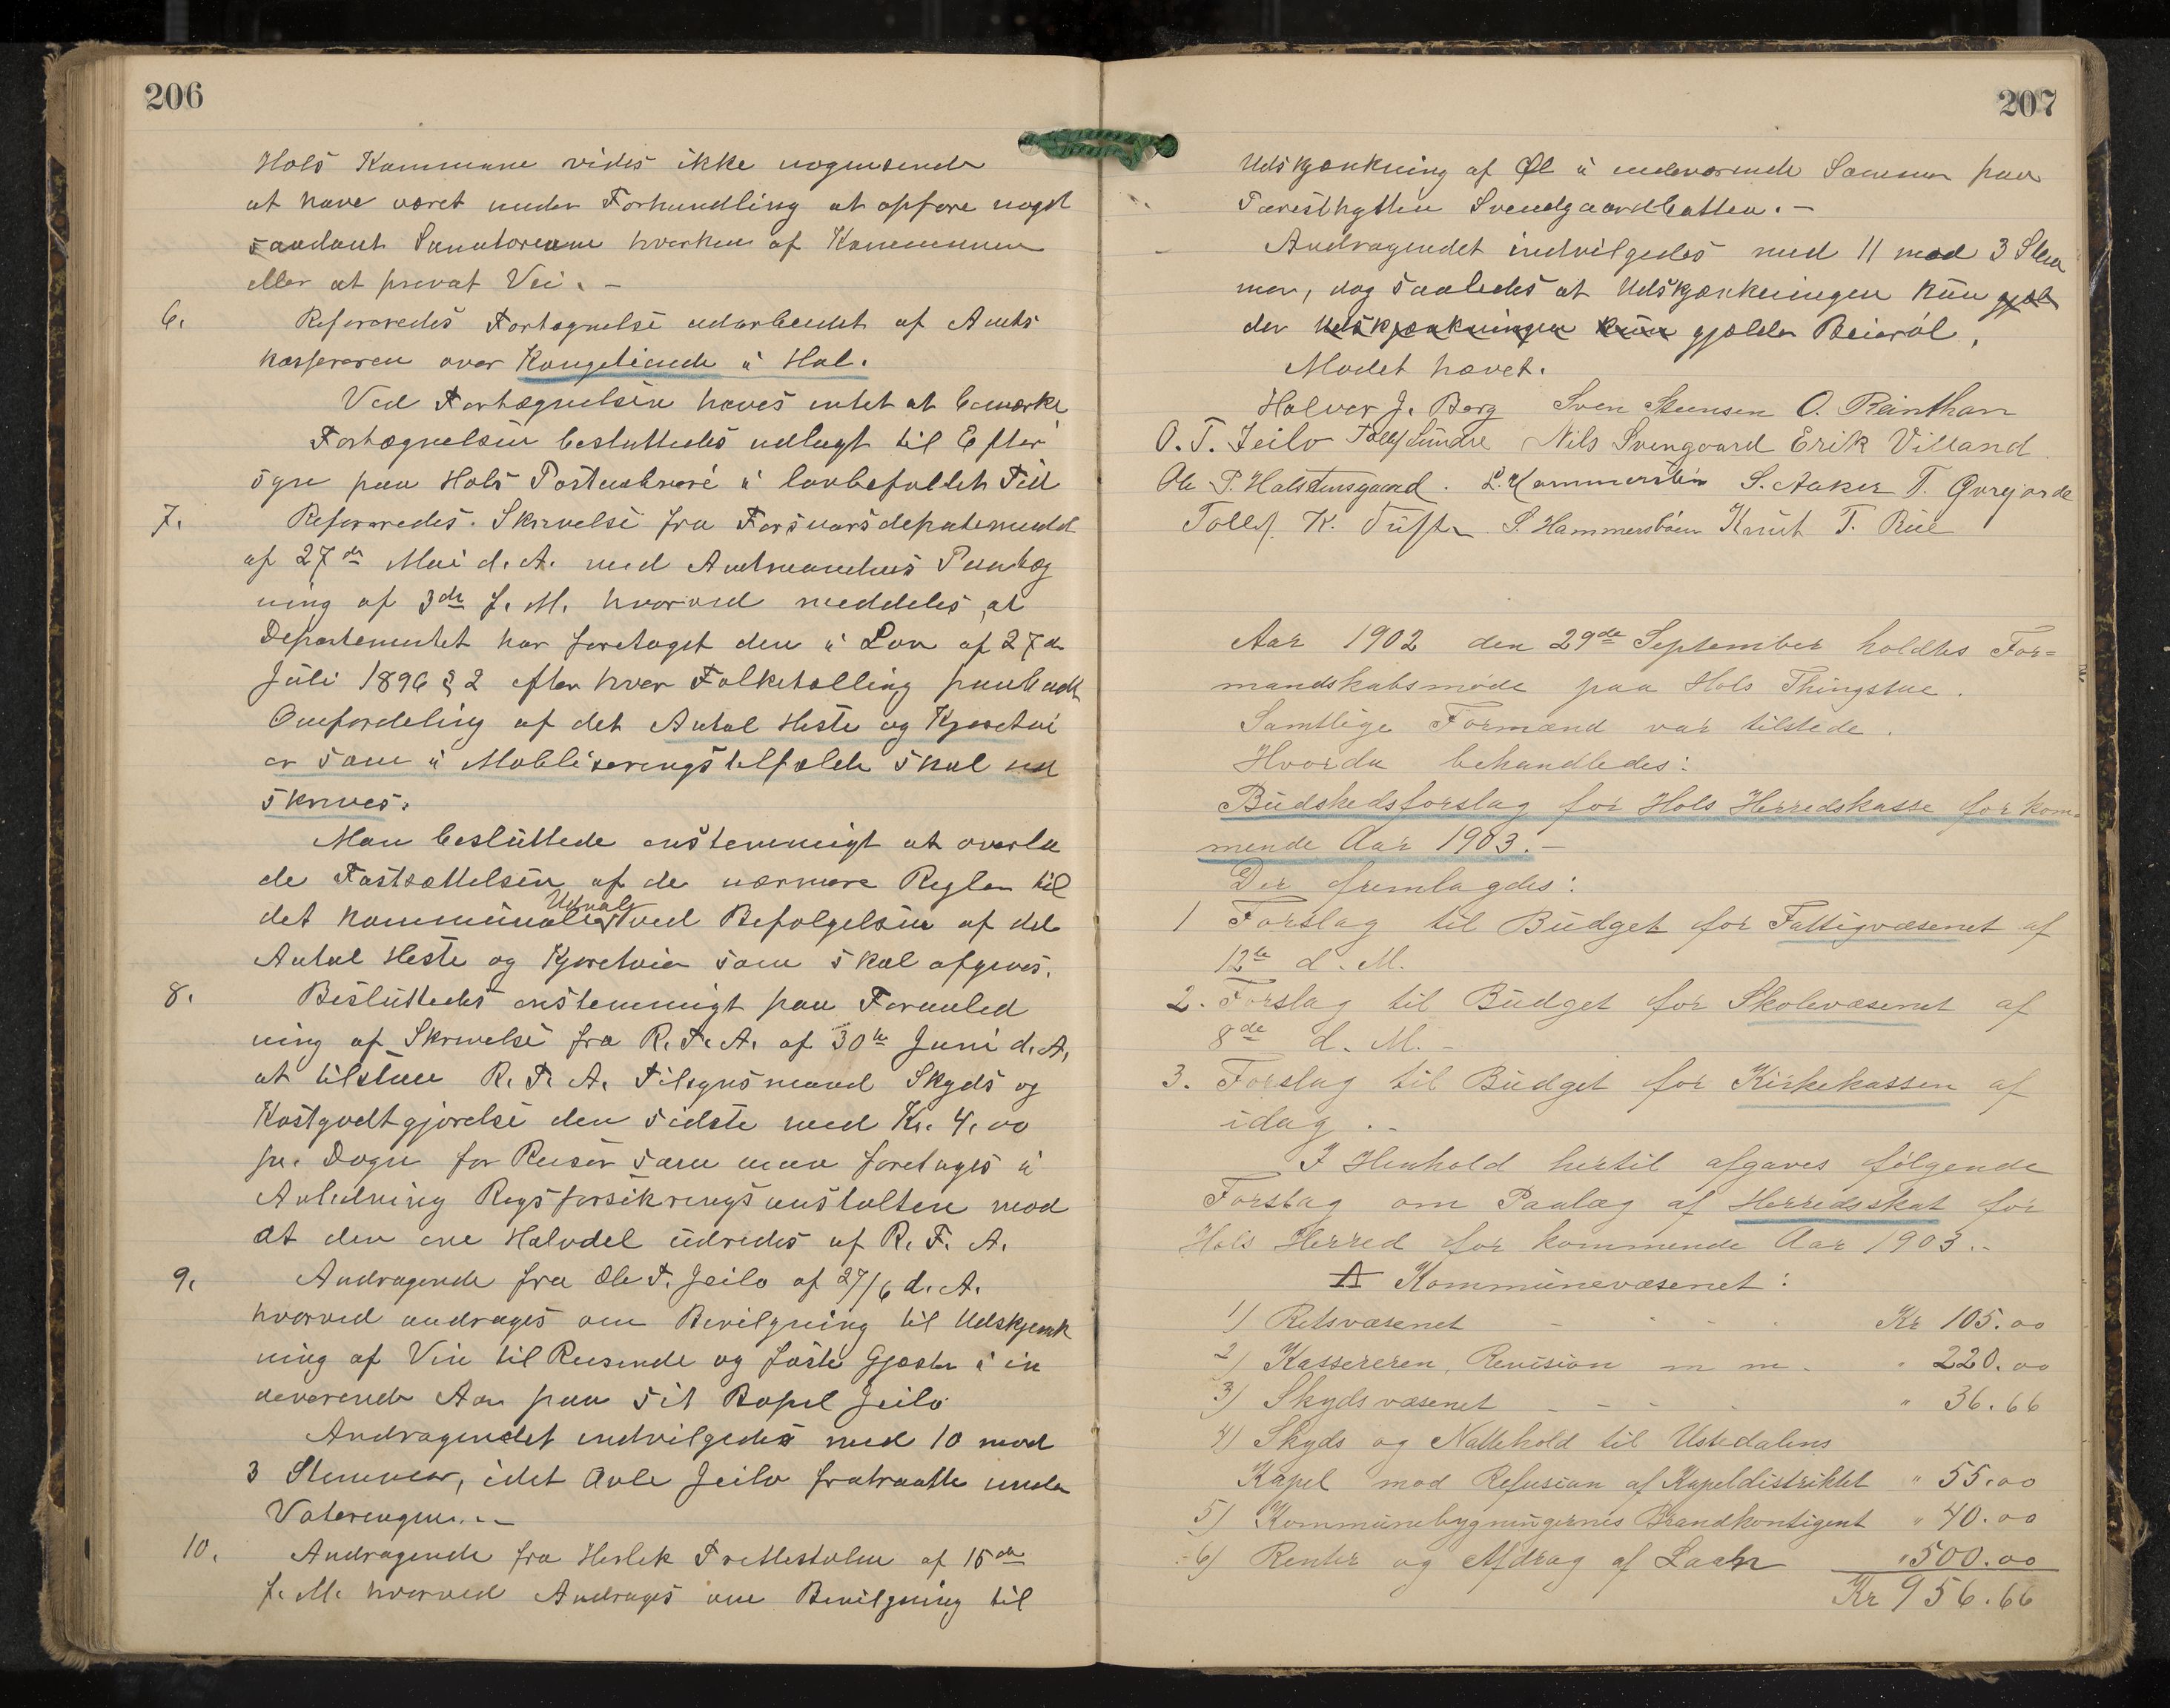 206
Hols Kommune vides ikke nogensende
at have været under Forhandling at opføre noget
saadant Sanatorium hverken af Kommunen
eller at privat Vei. –
6. Refereredes Fortegnelse udarbeidet af Amts
kassereren over Kongetiende i Hol.
Ved Fortægnelsen haves intet at bemærke
Fortægnelsen besluttedes udlagt til Efter
syn paa Hols Postaabneri i lovbefallet Tid
7. Refereredes. Skrivelse fra Forsvarsdepartementet
af 27de Mai d. A. med Amtmandens Paateg
ning af 3de f. M. hvorved meddeles, at
Departementet har foretaget den i Lov af 27de
Juli 1896 § 2 efter hver Folketælling paabudte
Omfordeling af det Antal Heste og Kjøretøi
er som i Mobliseringstilfælde skal ud
skrives.
Man besluttede enstemmigt at overla
de Fastsættelsen af de nærmere Regler til
Udvalg
det kommunale ved Befolgelsen af det
Antal Heste og Kjøretøier som skal afgives.
8. Besluttedes enstemmigt paa Foranled
ning af Skrivelse fra R. F. A. af 30te Juni d. A.
at tilstaa R. F. A. Tilsynsmand Skyds og
Kostgodtgjørelse den sidste med Kr. 4.00
pr. Døgn for Reiser som maa foretages i
Anledning Rigsforsikringsanstalten mod
at den ene Halvdel udredes af R. F. A.
9. Andragende fra Ole T. Jeilo af 27/6 d. A.
hvorved andrages om Bevilgning til Udskjænk
ning af Vin til Reisende og faste Gjæster i in
deværende Aar paa sit Bopel Jeilo
Andragendet indvilgedes med 10 mod
3 Stemmer, idet Aale Jeilo fratraadte under
Voteringen. –
10. Andragende fra Herlek Trettestølen af 15de
f. M. hvorved Andrages om Bevilgning til
207
Udskjænkning af Øl i indeværende Sommer paa
Turisthytten Svendgaardbotten. –
Andragendet indvilgedes med 11 mod 3 Stem
mer, dog saaledes at Udskjænkningen kun gjæl
der Udskjænkningen kun gjælder Beierøl.
Mødet hævet.
Halvor J. Berg Sven Steensen O. Reinthon
O. T. Jeilo Tollef Sundre Nils Svengaard Erik Villand
Ole P. Halstensgaard. L. Kammersten S. Aaker T. Gurigarde
Tollef K. Tufte S. Hammersbøen Knut T. Rue
Aar 1902 den 29de September holdtes For=
mandskabsmøde paa Hols Thingstue.
Samtlige Formænd var tilstede.
Hvorda behandledes:
Budskedsforslag for Hols Herredskasse for kom=
mende Aar 1903. –
Der fremlagdes:
1 Forslag til Budget for Fattigvæsenet af
12te d. M.
2. Forslag til Budget for Skolevæsenet af
8de d. M. –
3. Forslag til Budget for Kirkekassen af
idag. –
I Henhold hertil afgaves følgende
Forslag om Paalæg af Herredsskat for
Hols Herred for kommende Aar 1903. –
A Kommunevæsenet:
1) Retsvæsenet – - - - Kr 105.00
2) Kassereren, Revision m m. " 220.00
3) Skydsvæsenet – – – - " 36.66
4) Skyds og Nattehold til Ustedalens
Kapel mod Refusion af Kapeldistriktet " 55.00
5) Kommunebygningernes Brandkontigent " 40.00
6) Renter og Afdrag af Laan " 500.00
Kr 956.66